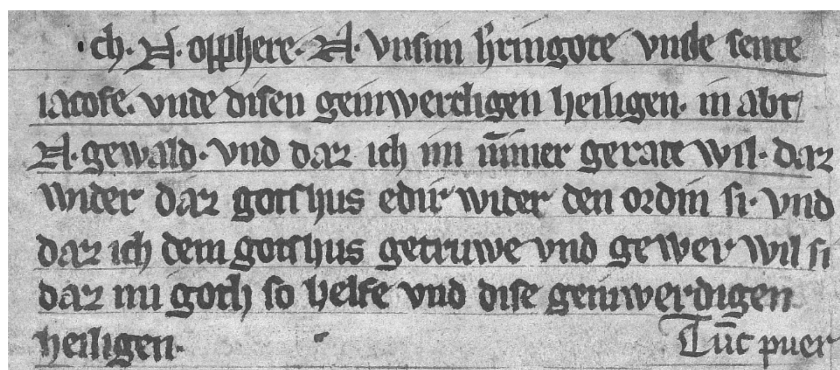 ·ch· N· opphere· N· vnsim h̄ringote vnde sente
iacofe· vnde disen geinwerdigen heiligen· in abt
N· gewald· vnd daz ich im nīmer gerate wil· daz
wider daz gotshus edir wider den ordin si· vnd
daz ich dem gotshus getruwe vnd gewer wil si
daz mi goth so helfe vnd dise geinwerdigen
heiligen· Tūc puer